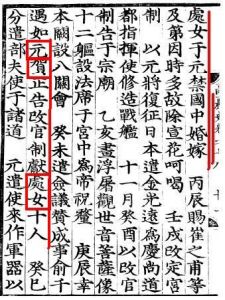 處女于元禁國中婚嫁 丙辰賜崔之甫等
及第因時多故除宣花呵喝 壬戌改定官
制 以元將復征日本遣金光遠為慶尚道
都指揮使修造戰艦 十一月癸酉以改官
制告于宗廟 乙亥畫浮屠觀世音菩薩像
十二軀設法席于宮中為帝祝釐 庚辰幸
本闕設八關會 癸未遣僉議贊成事俞千
遇如元賀正告改官制獻處女十人 癸巳
分遣部夫使于諸道 元遣使來作軍器以